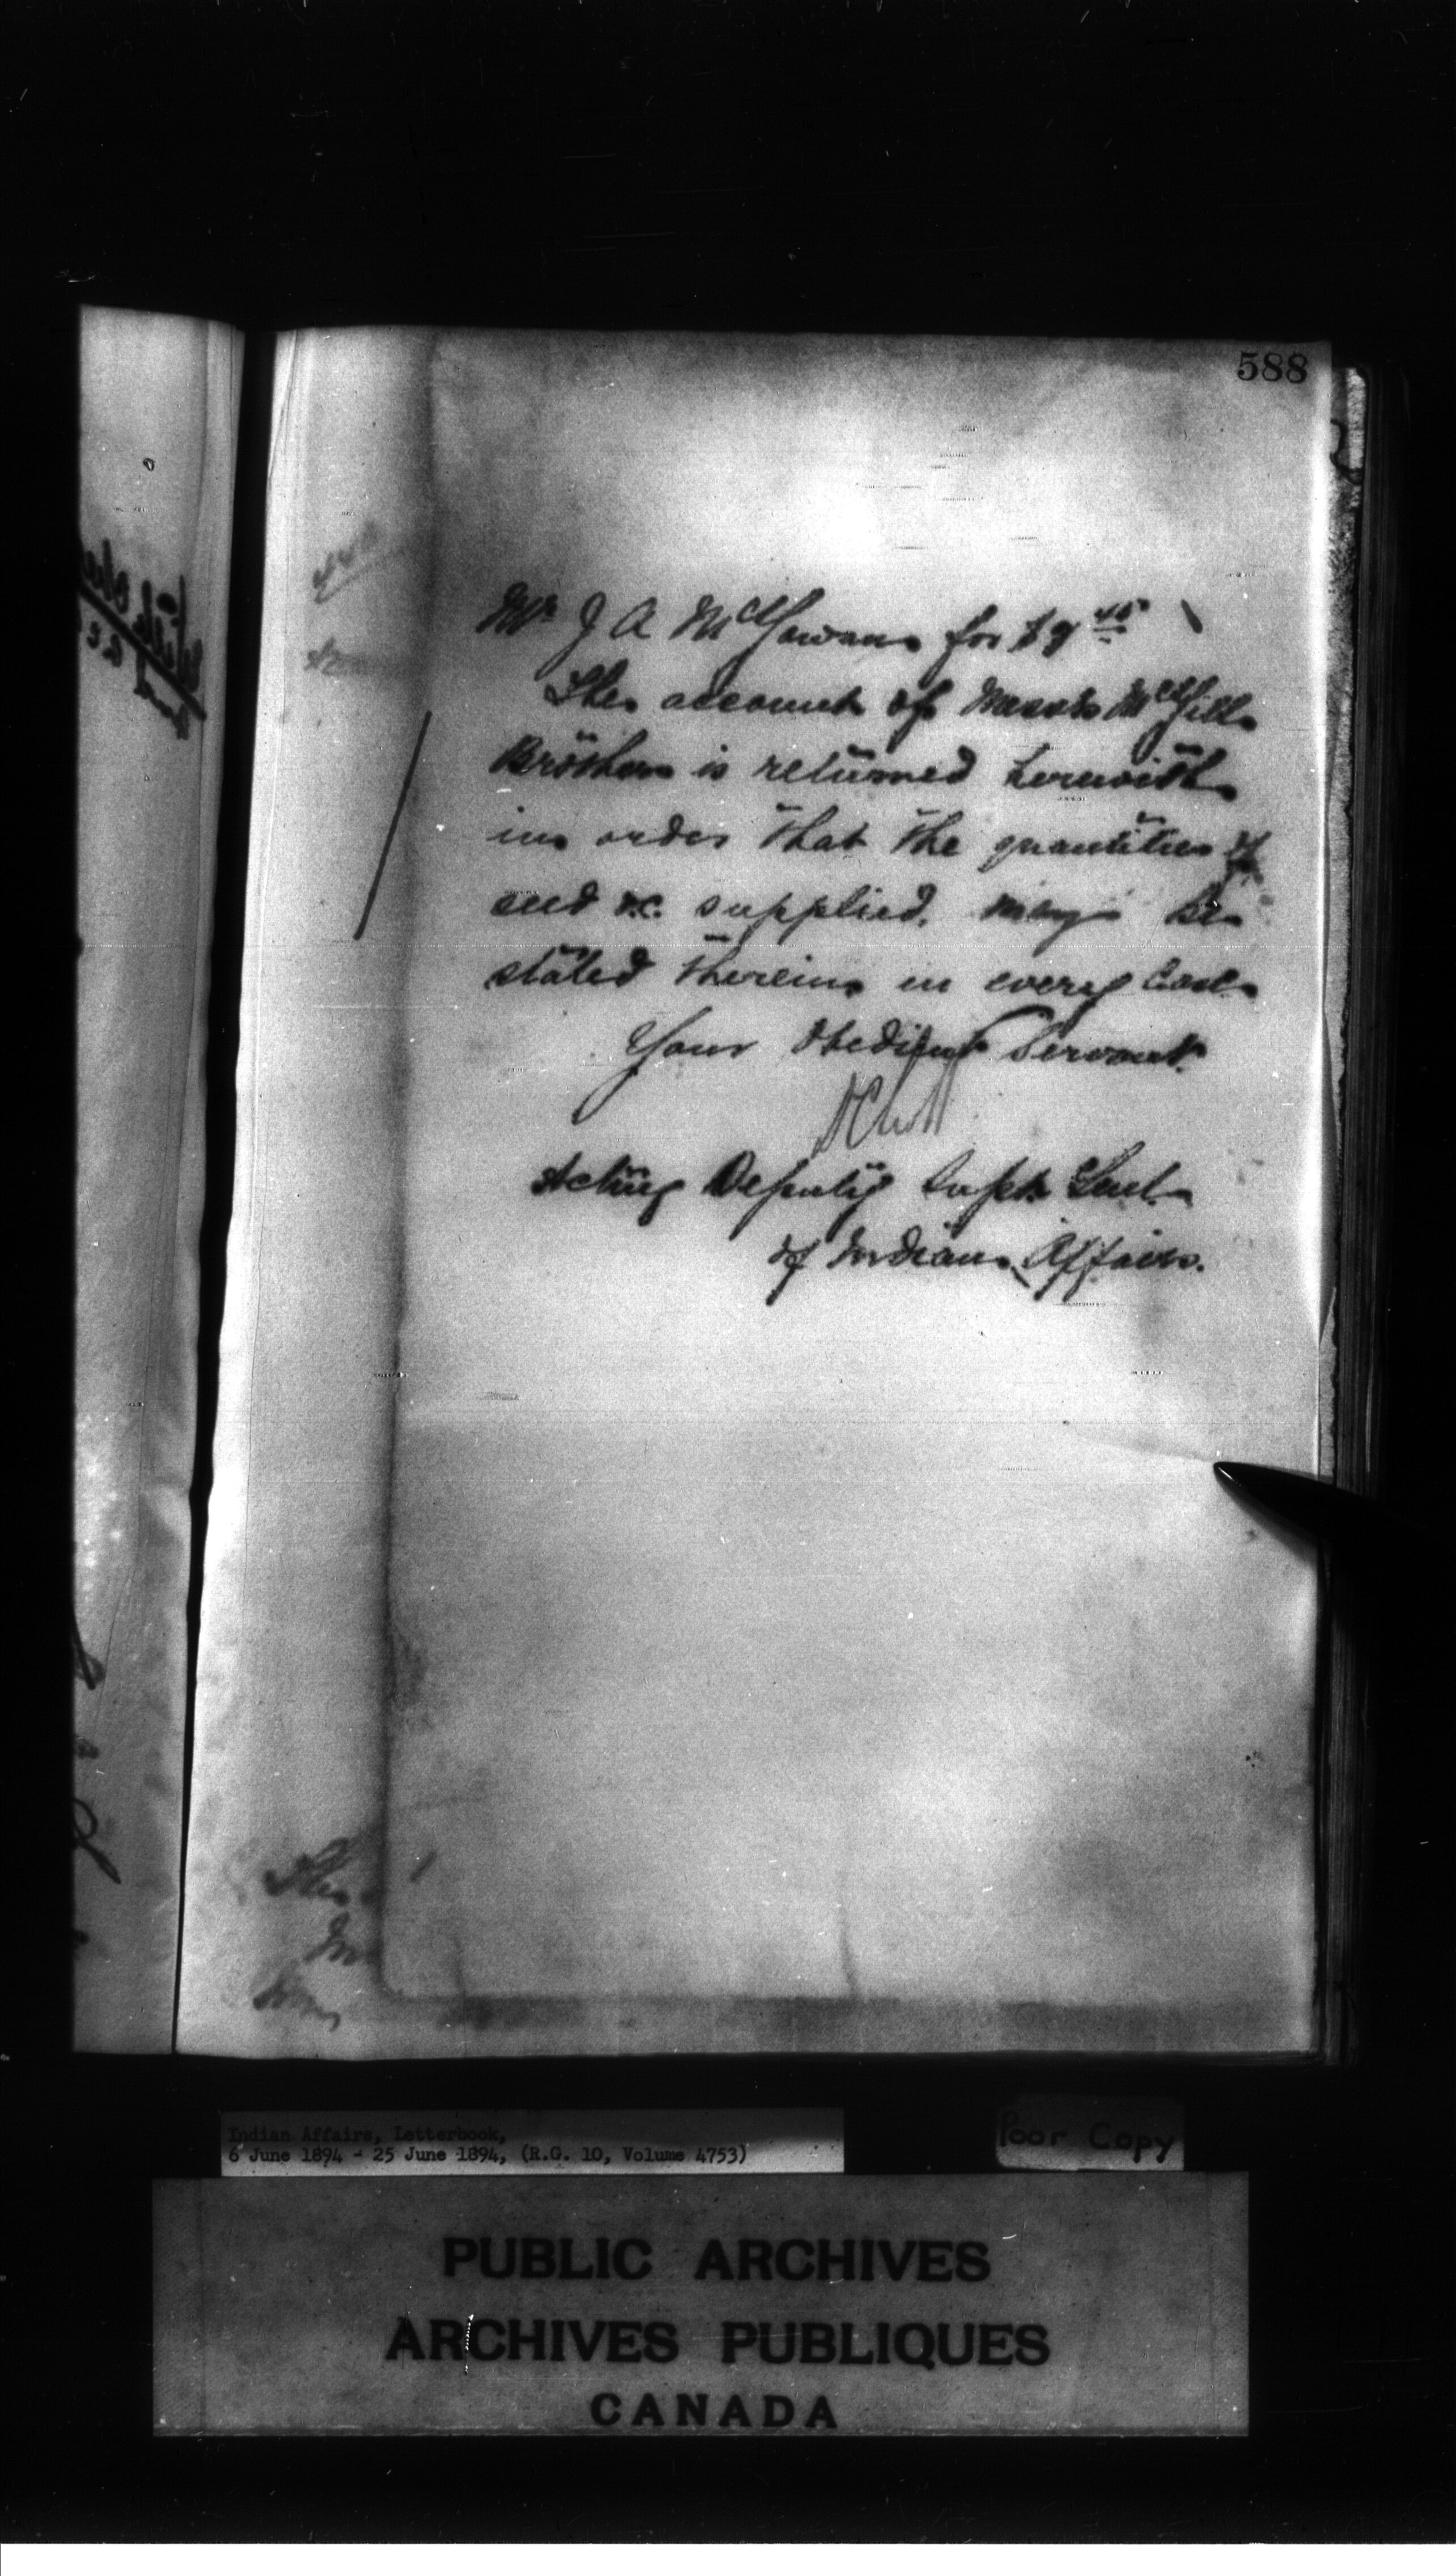 588
Mr J A McGowan for $9
The account of Messrs McGill
Brothers is returned herewith
in order that the quantities of
seed &c. supplied, may be
stated therein in every case.
Your obedient Servant.
Acting Deputy Supt. Genl.
of Indian Affairs.
Indian Affairs, Letterbook,
6 June 1894 - 25 June 1894, (R.G. 10, Volume 4753)
Poor Copy
PUBLIC ARCHIVES
ARCHIVES PUBLIQUES
CANADA